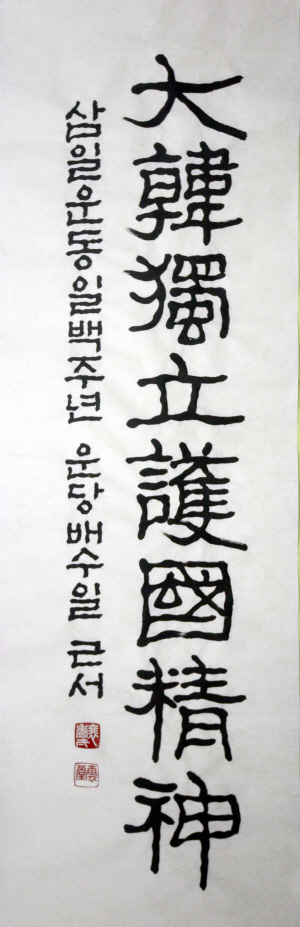 大韓獨立護國精神
삼일운동일백주년 운당배수일 근서